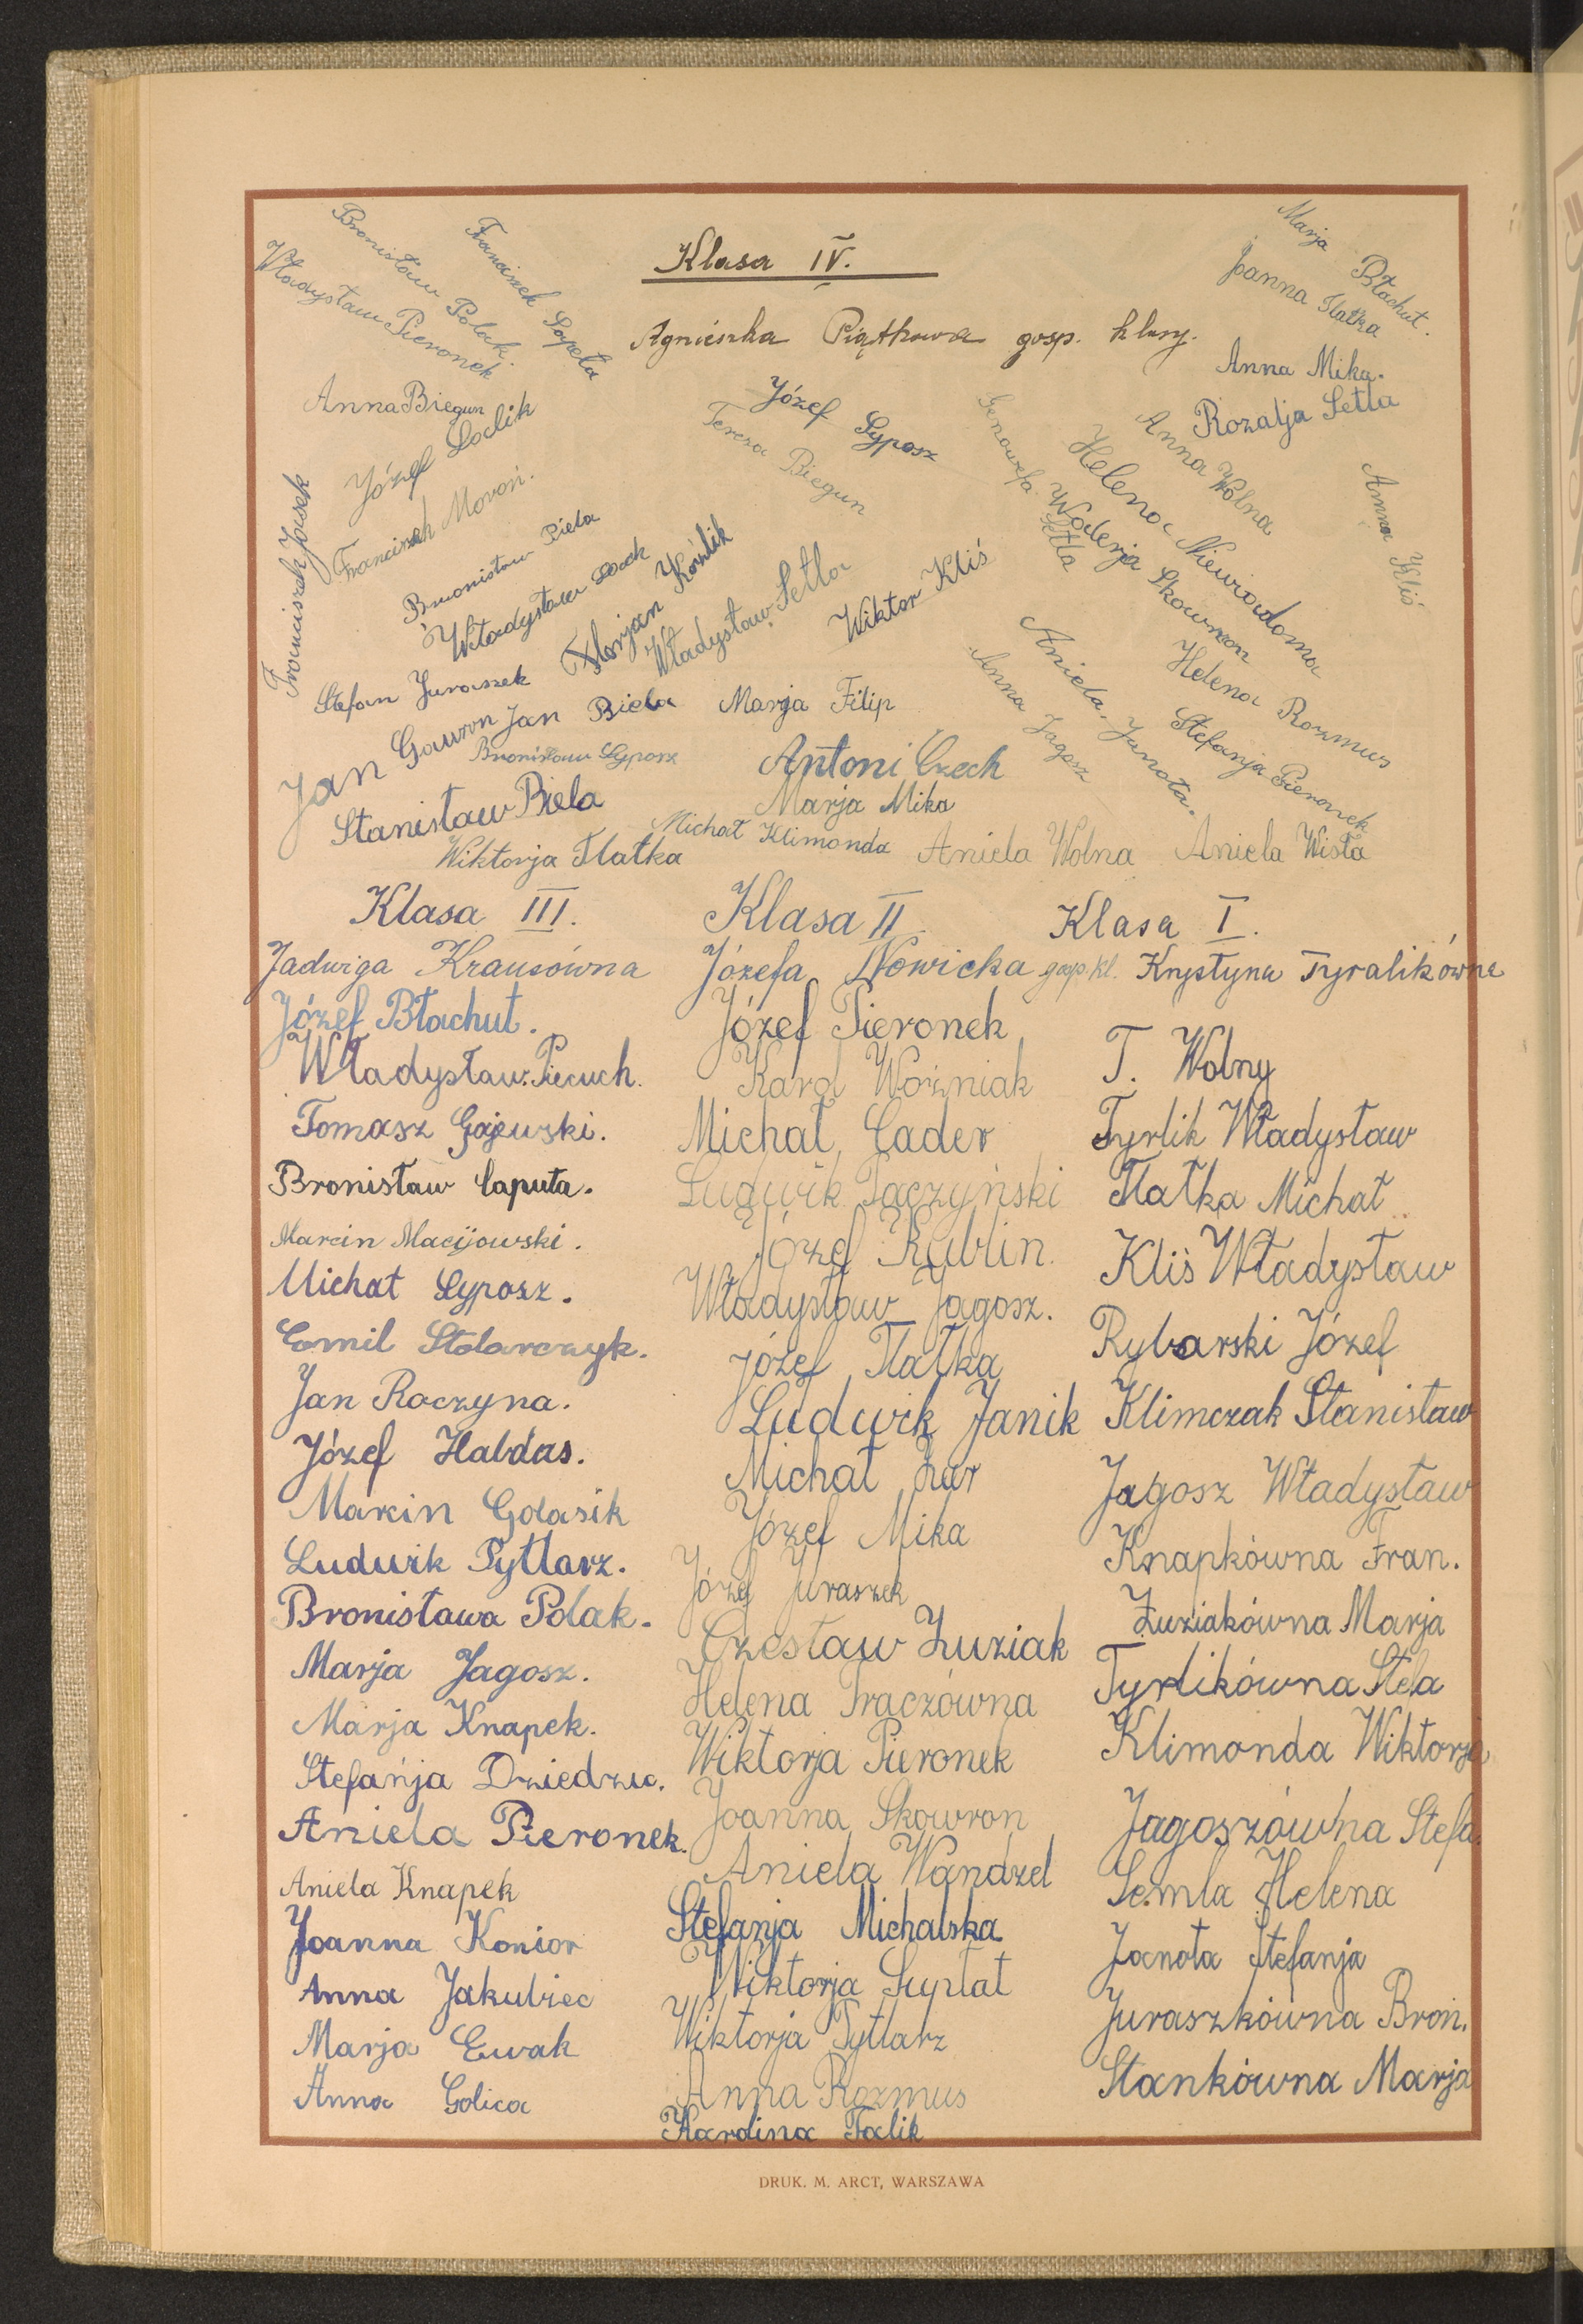 Klasa IV.
Agnieszka Piątkowa gosp. klasy.
Bronisław Polak.
Franciszek Sapeta
Władysław Pieronek
Marja Błachut.
Joanna Tlatka
Anna Mika.
Rozalja Setla
Anna Biegun
Józef
Józef Syposz
Tereza Biegun
Genowefa Setla
Anna Wolna
Helena Niewiadoma
Anna Kliś
Franciszek Moroń.
Franciszek
Bronisław Piela
Władysław
Florjan
Władysław Setla
Wiktor Kliś
Walerja Skowron
Helena Rozmus
Stefan Juraszek
Jan Gawron
Jan Biela
Marja Filip
Anna Jagosz
Aniela Janota.
Stefanja Pieronek
Bronisław Syposz
Antoni Czech
Stanisław Biela
Marja Mika
Michał Klimonda
Wiktorja Tlatka
Aniela Wolna
Aniela Wisła
Klasa III.
Jadwiga Krausówna
Józef Błachut.
Władysław Piecuch.
Tomasz Gajewski.
Bronisław Caputa.
Marcin Macijowski.
Michał Syposz.
Emil Stolarczyk.
Jan Raczyna.
Józef Habdas.
Marcin Golasik
Ludwik Pytlarz.
Bronisława Polak.
Marja Jagosz.
Marja Knapek.
Stefanja Dziedzic.
Aniela Pieronek.
Aniela Knapek
Joanna Konior
Anna Jakubiec
Marja Ewak
Anna Golica
Klasa II.
Józefa Nowicka gosp. kl.
Józef Pieronek
Karol Woźniak
Michał Cader
Ludwik Paczyński
Józef Kubin.
Władysław Jagosz.
Józef Tlatka
Ludwik Janik
Michał Żur
Józef Mika
Józef Juraszek
Czesław Żuziak
Helena Traczówna
Wiktorja Pieronek
Joanna Skowron
Aniela Wandzel
Stefanja Michalska
Wiktorja Suptat
Wiktorja Pytlarz
Anna Rozmus
Karolina Falik
Klasa I.
Krystyna Tyralikówna
T. Wolny
Tyrlik Władysław
Tlatka Michał
Kliś Władysław
Rybarski Józef
Klimczak Stanisław
Jagosz Władysław
Knapkówna Fran.
Żuziakówna Marja
Tyrlikówna Stefa
Klimonda Wiktorja
Jagoszówna Stefa.
Semla Helena
Janota Stefanja
Juraszkówna Bron.
Stankówna Marja
DRUK. M. ARCT, WARSZAWA